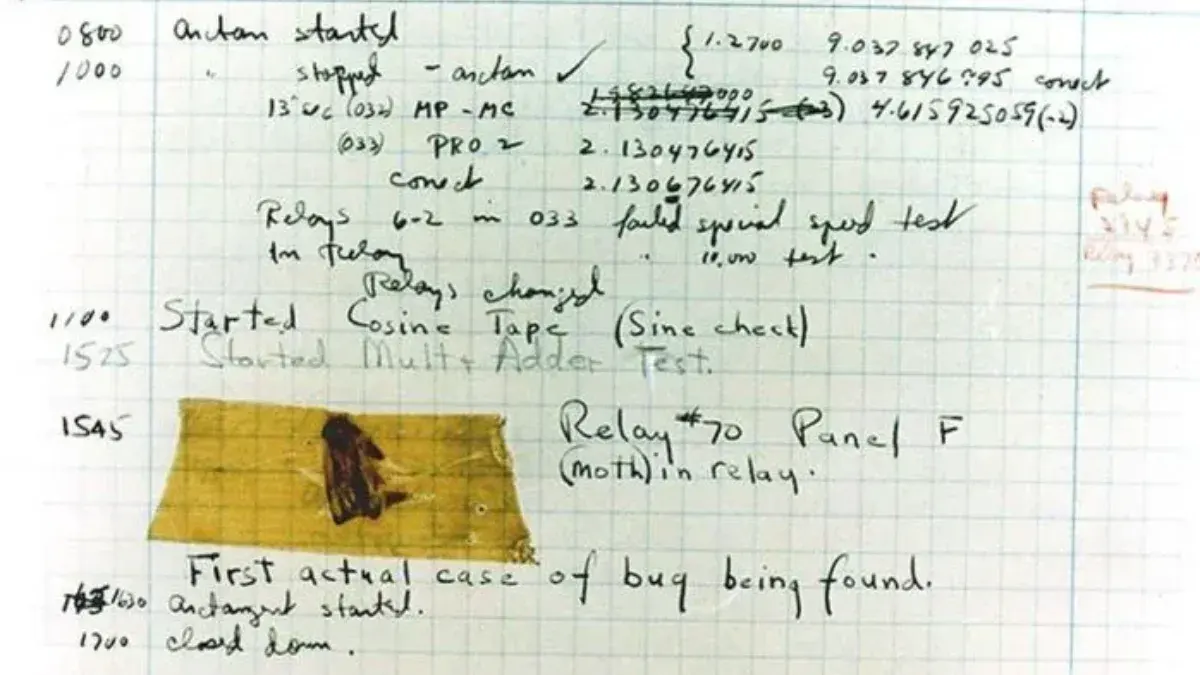 0800 arctan started { 1.2700 9.037 847 025
1000 " stopped - arctan ✓ 9.037 846 995 correct
13" uc (032) MP - MC 2.130476415 (-3) 4.615925059(-2)
(033) PRO 2 2.130476415
correct 2.130676415
Relays 6-2 in 033 failed special speed test
In Relay " 10.000 test.
Relay
Relay
Relays changed
1100 Started Cosine Tape (Sine check)
1525 Started Mult+ Adder Test.
1545 Relay #70 Panel F
(moth) in relay.
First actual case of bug being found.
1630 arctangent started.
1700 closed down.